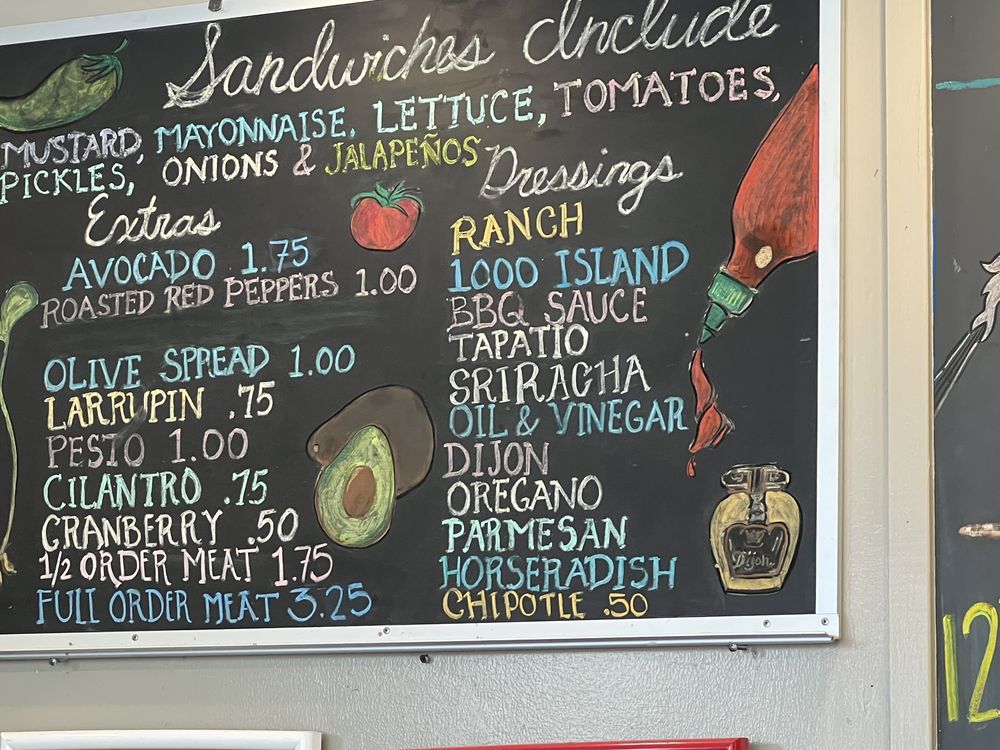 Sandwiches Include
MUSTARD, MAYONNAISE, LETTUCE, TOMATOES,
PICKLES, ONIONS & JALAPEÑOS
Extras
AVOCADO 1.75
ROASTED RED PEPPERS 1.00
OLIVE SPREAD 1.00
LARRUPIN .75
PESTO 1.00
CILANTRO .75
CRANBERRY .50
1/2 ORDER MEAT 1.75
FULL ORDER MEAT 3.25
Dressings
RANCH
1000 ISLAND
BBQ SAUCE
TAPATIO
SRIRACHA
OIL & VINEGAR
DIJON
OREGANO
PARMESAN
HORSERADISH
CHIPOTLE .50
Dijon!
12